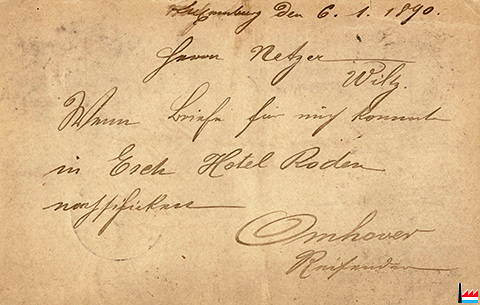 Luxemburg den 6. 1. 1890.
Herrn Netzer
Wiltz.
Wenn Briefe für mich kommt
in Esch Hotel Roden
nachschicken
Omhover
Reisender